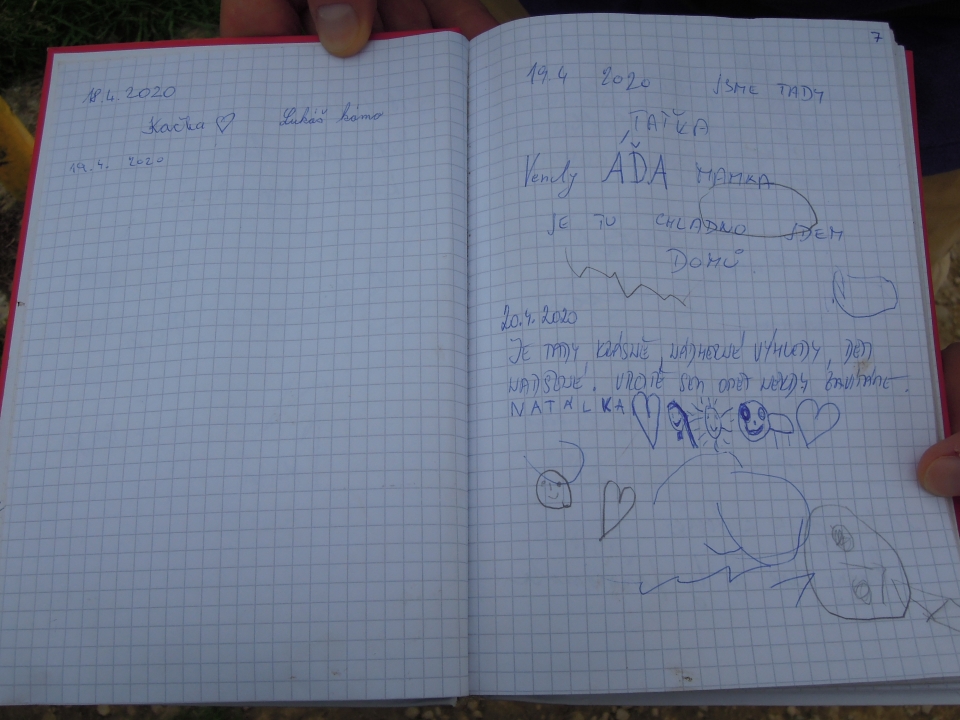 18.4.2020
Kačka ♡ Lukáš
19.4. 2020
7
19.4 2020 JSME TADY
TAŤKA
Vendy ÁĎA MAMKA
JE TU CHLADNO JDEM
DOMŮ
20.4.2020
JE TADY KRÁSNĚ, NÁDHERNÉ VÝHLEDY, DĚTI
NADŠENÉ. URČITĚ SEM OPĚT NĚKDY
NATÁLKA